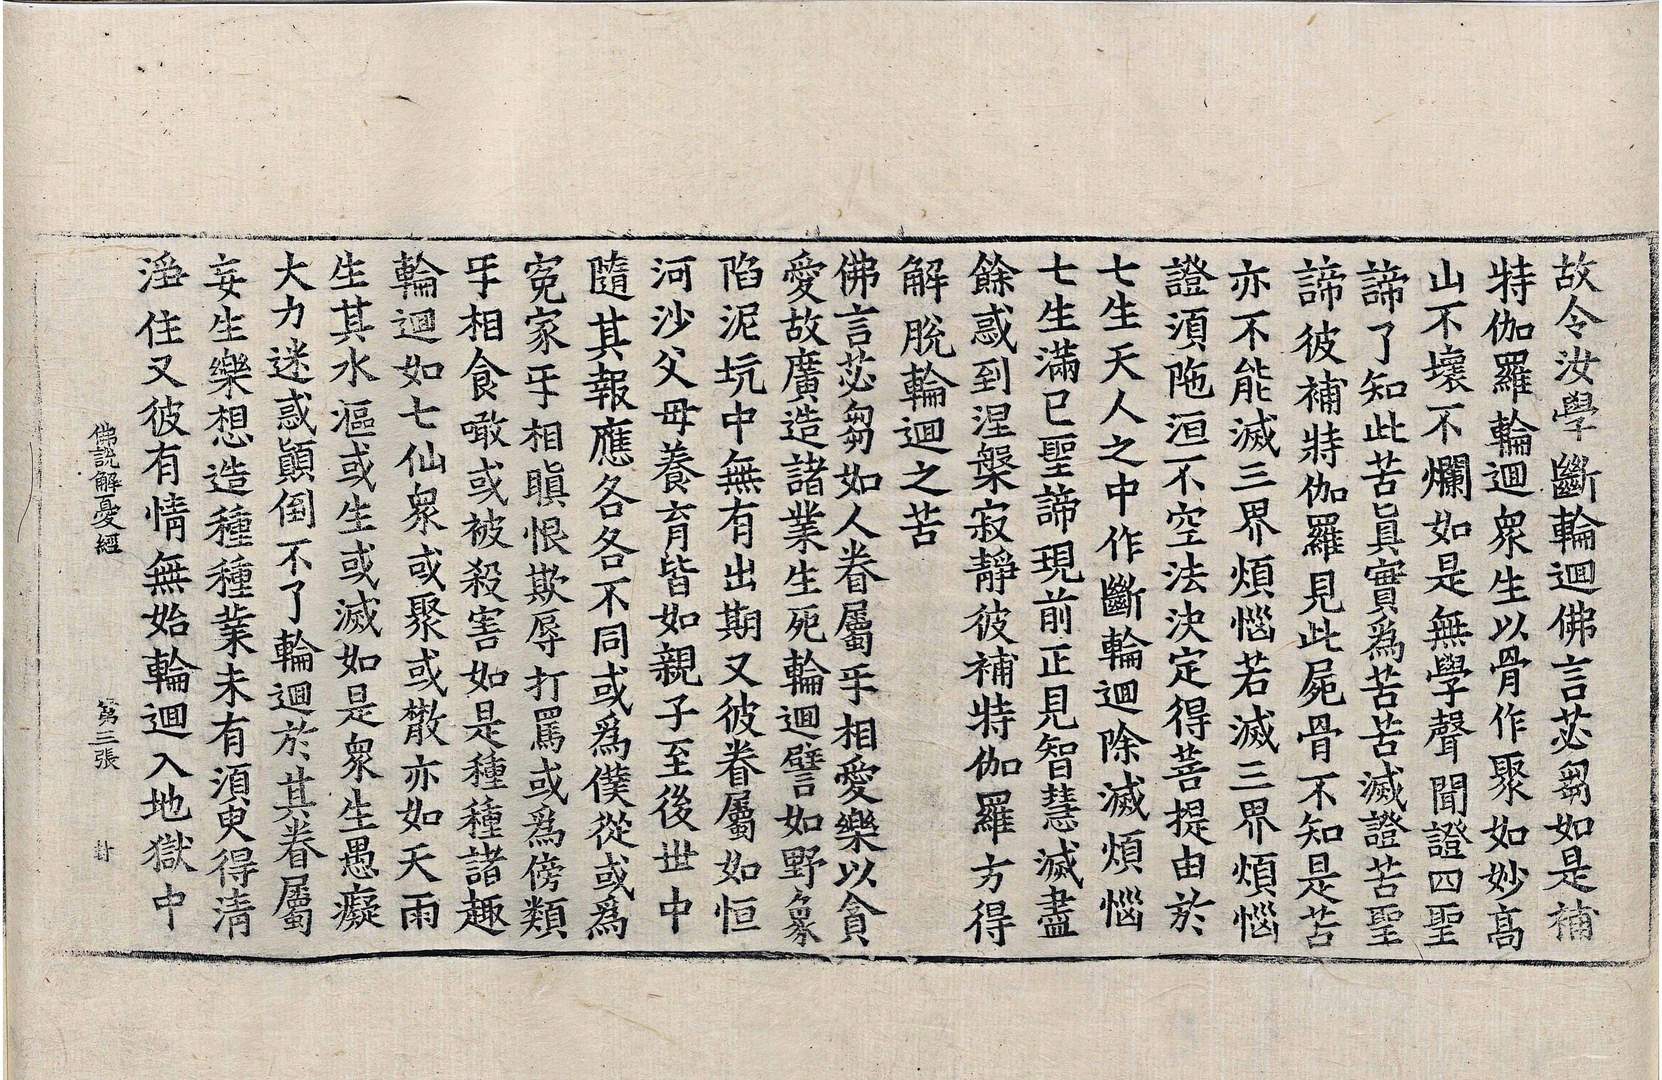 故令汝學斷輪迴佛言苾芻如是補
特伽羅輪迴眾生以骨作聚如妙高
山不壞不爛如是無學聲聞證四聖
諦了知此苦眞實爲苦苦滅證苦聖
諦彼補特伽羅見此屍骨不知是苦
亦不能滅三界煩惱若滅三界煩惱
證須陁洹不空法決定得菩提由於
七生天人之中作斷輪迴除滅煩惱
七生滿已聖諦現前正見智慧滅盡
餘惑到涅槃寂靜彼補特伽羅方得
解脫輪迴之苦
佛言苾芻如人眷屬乎相愛樂以貪
愛故廣造諸業生死輪迴譬如野象
陷泥坑中無有出期又彼眷屬如恒
河沙父母養育皆如親子至後世中
隨其報應各各不同或爲僕從或爲
冤家乎相瞋恨欺辱打罵或爲傍類
乎相食噉或被殺害如是種種諸趣
輪迴如七仙眾或聚或散亦如天雨
生其水漚或生或滅如是眾生愚癡
大力迷惑顚倒不了輪迴於其眷屬
妄生樂想造種種業未有須臾得清
淨住又彼有情無始輪迴入地獄中
佛說解憂經 第三張 封